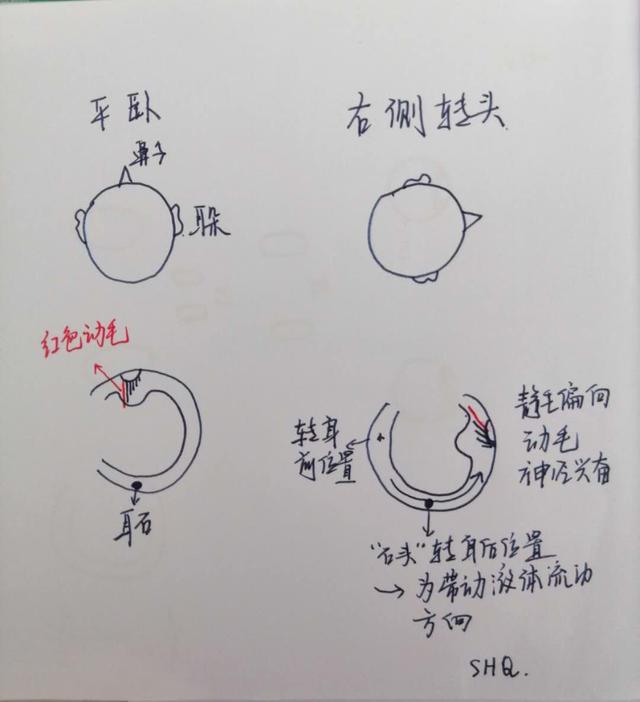 平卧
右侧转头
鼻子
耳朵
红色动毛
耳石
转身
前位置
静毛偏向
动毛
神经兴奋
“石头”转身后位置
→为带动液体流动
方向
SHQ.